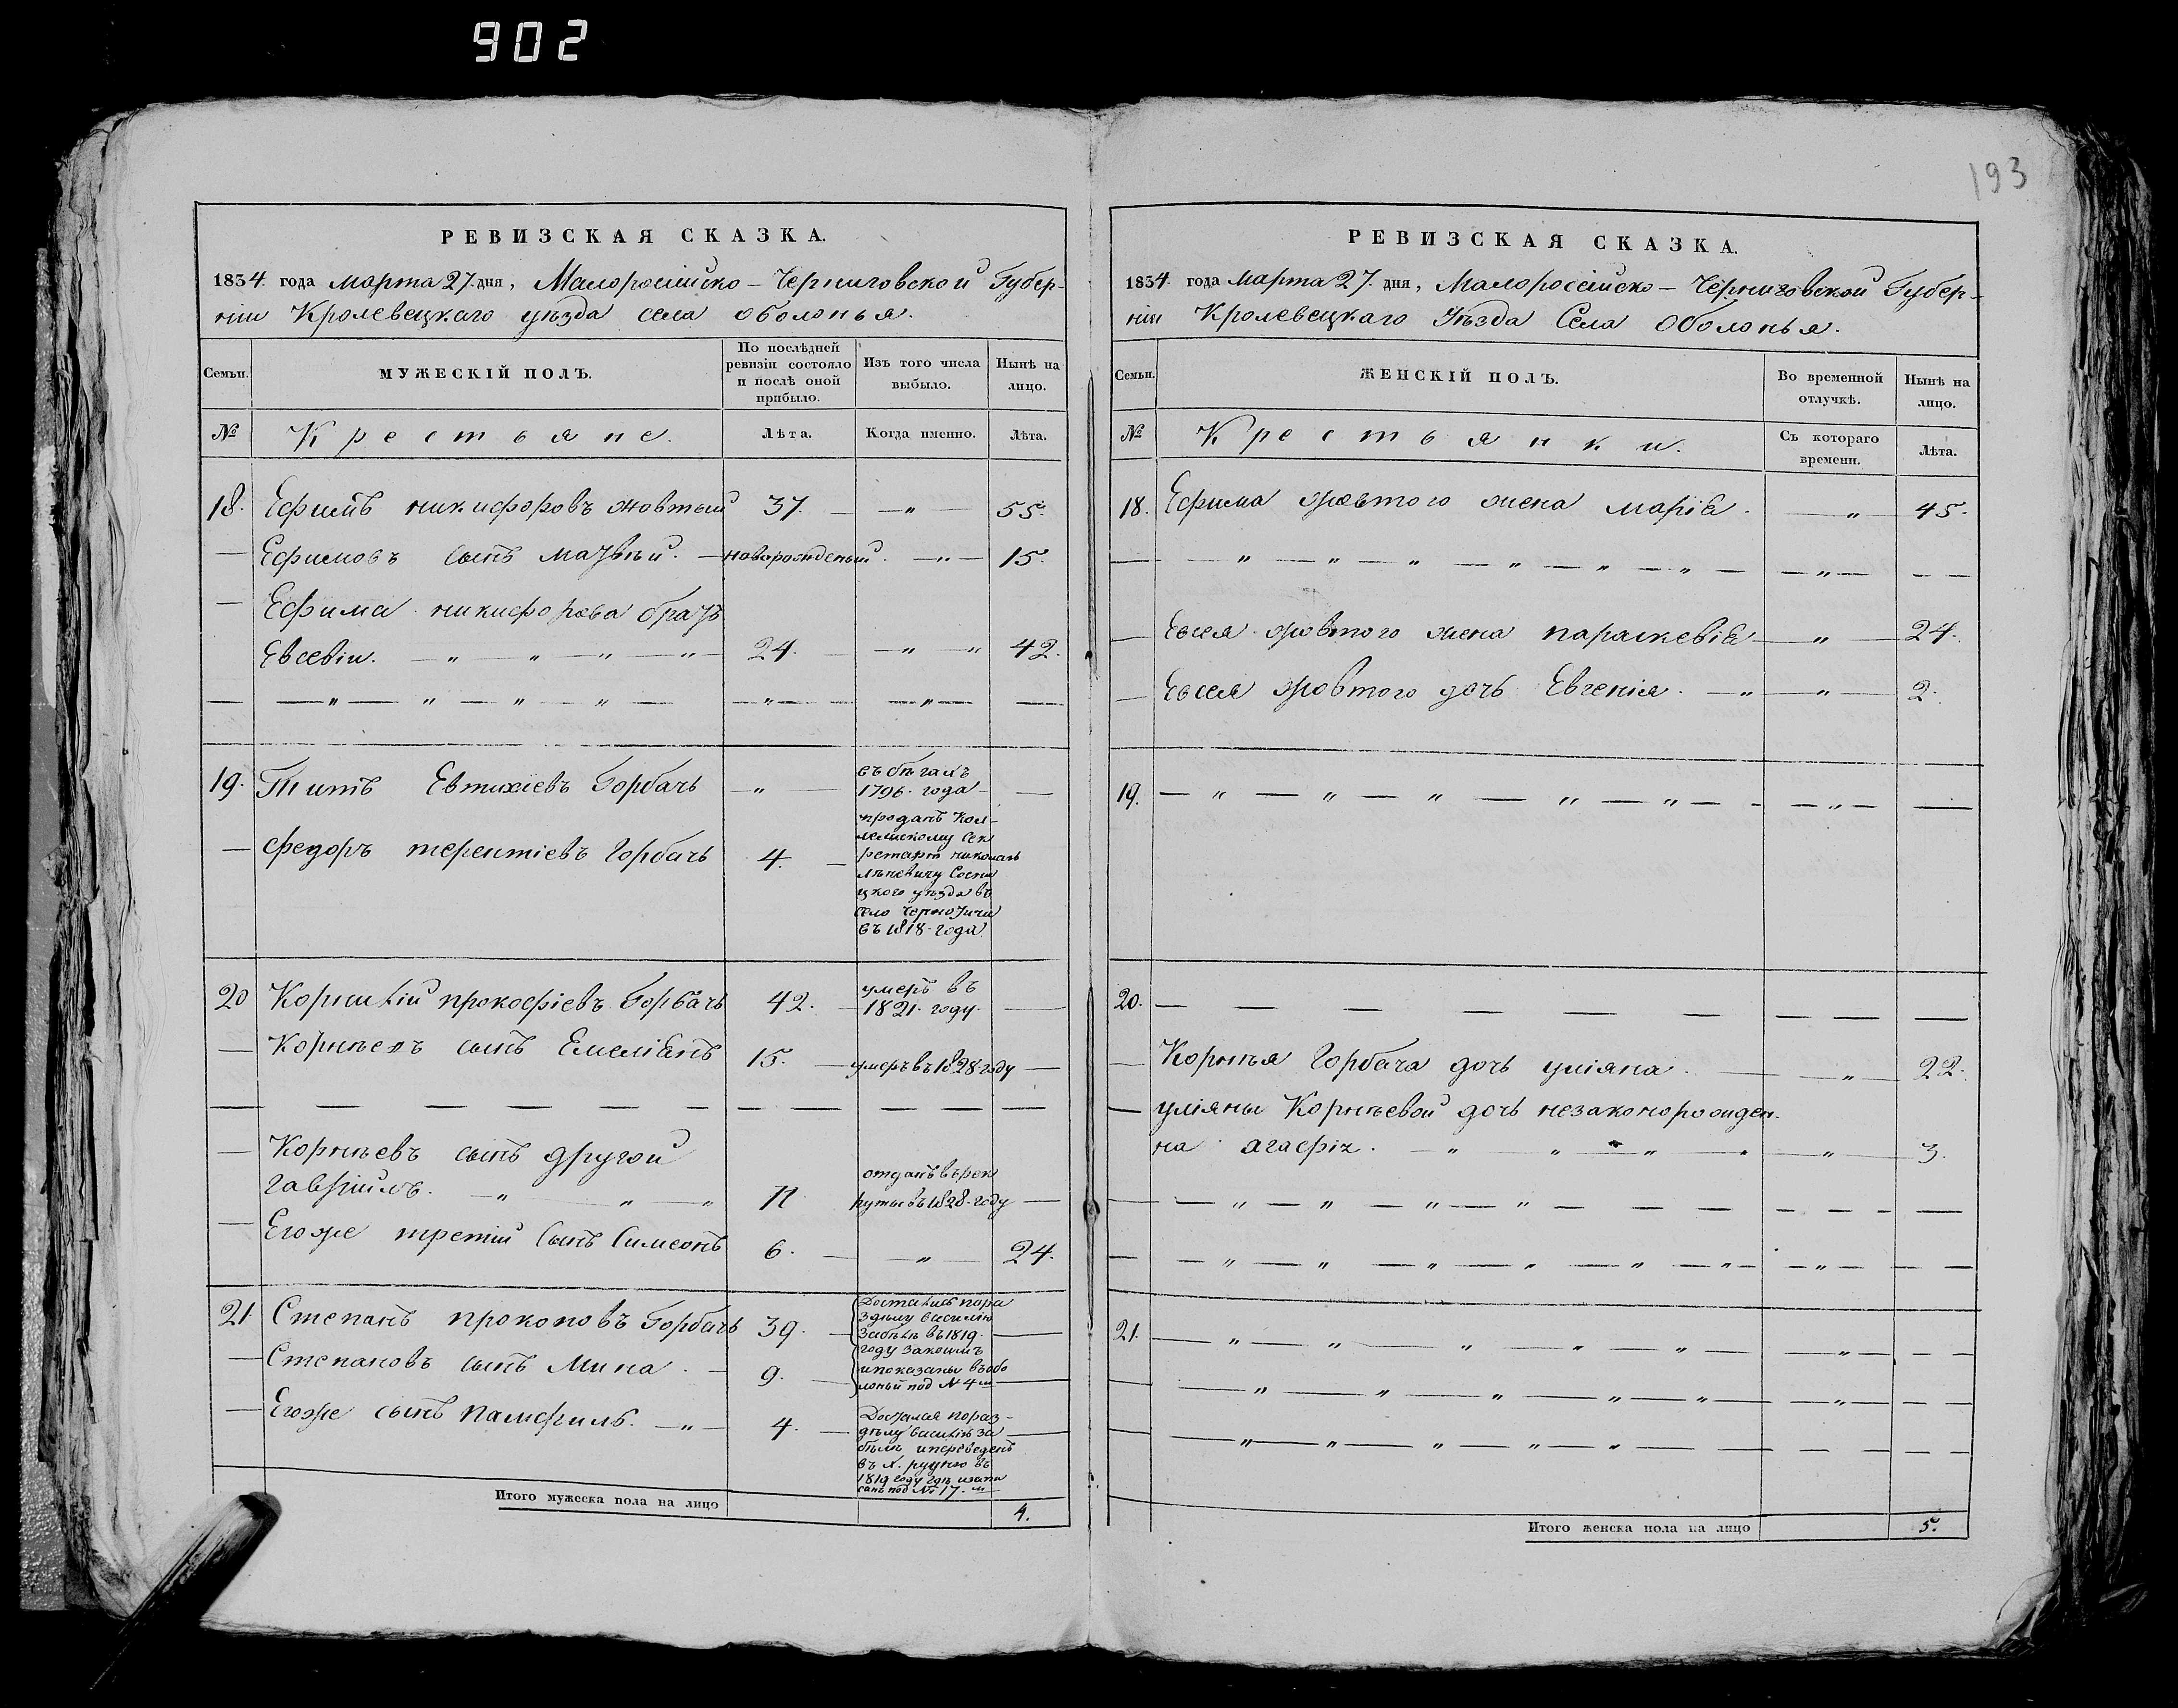 902
193
РЕВИЗСКАЯ СКАЗКА.
1834. года марта 27. дня, Малоросiйско - Черниговской Губер-
нiи Кролевецкаго уѣзда села оболонья.
Семьи. МУЖЕСКIЙ ПОЛЪ. По послѣдней ревизiи состояло и послѣ оной прибыло. Изъ того числа выбыло. Нынѣ на лицо.
№ Крестьяне. Лѣта. Когда именно. Лѣта.
18. Ефимъ никифоровъ жовтый 37. — „ — 55.
— Ефимовъ сынъ матвѣй. — новорожденый. — „ — 15.
— Ефима никифорова братъ
Евсевiи. — „ — „ — „ — „ — 24. — „ — „ 42.
19. Титъ Евтихiевъ Горбачъ — „ — въ бѣгахъ
1796. года —
— федоръ терентiевъ Горбачъ 4. — проданъ Кол-
лежскому Сек
ретарю николаю
Сосни
цкого уѣзда въ
село
въ 1818. года.
20 Корнилiй прокофiевъ Горбачъ 42. — умеръ въ
1821. году. —
— Корнѣевъ сынъ Емелiанъ 15. — умеръ въ 1828 году —
— Корнѣевъ сынъ другой
гавриилъ. — „ „ „ 11 отданъ в рек
руты въ 1828. году —
— Егоже третiй Сынъ Симеонъ 6. — „ — 24.
21 Степанъ прокоповъ Горбачъ 39. — Достались пора
здѣлу василию
Забѣлѣ въ 1819.
году
— Степановъ сынъ Мина. — 9. — ипоказаны въ обо
лоньи под N 4 м
— Егоже сынъ памфилъ. — „ — 4. — Достался пораз-
дѣлу Василiю За
бѣлѣ ипереведенъ
въ х. рудню въ
1819 году гдѣ изапи
санъ под № 17. м
Итого мужеска пола на лицо 4.
РЕВИЗСКАЯ СКАЗКА.
1834. года Марта 27. дня, Малороссiйско — Черниговской Губер-
нiи Кролевецкаго Уѣзда Села Оболонья.
Семьи. ЖЕНСКIЙ ПОЛЪ. Во временной отлучкѣ. Нынѣ на лицо.
№ Крестьянки. Съ котораго времени. Лѣта.
18. Ефима жовтого жена марiя. — „ 45.
— Евсея жовтого жена параскевiя — „ — 24.
— Евсея жовтого дочь Евгенiя. — „ — „ — 2.
19.
20.
— Корнѣя Горбача дочь улiяна. — „ — 22.
— улiяны Корнѣевой дочь незаконорожден-
на агафiя. — „ „ „ „ — „ — 3.
21.
Итого женска пола на лицо 5.